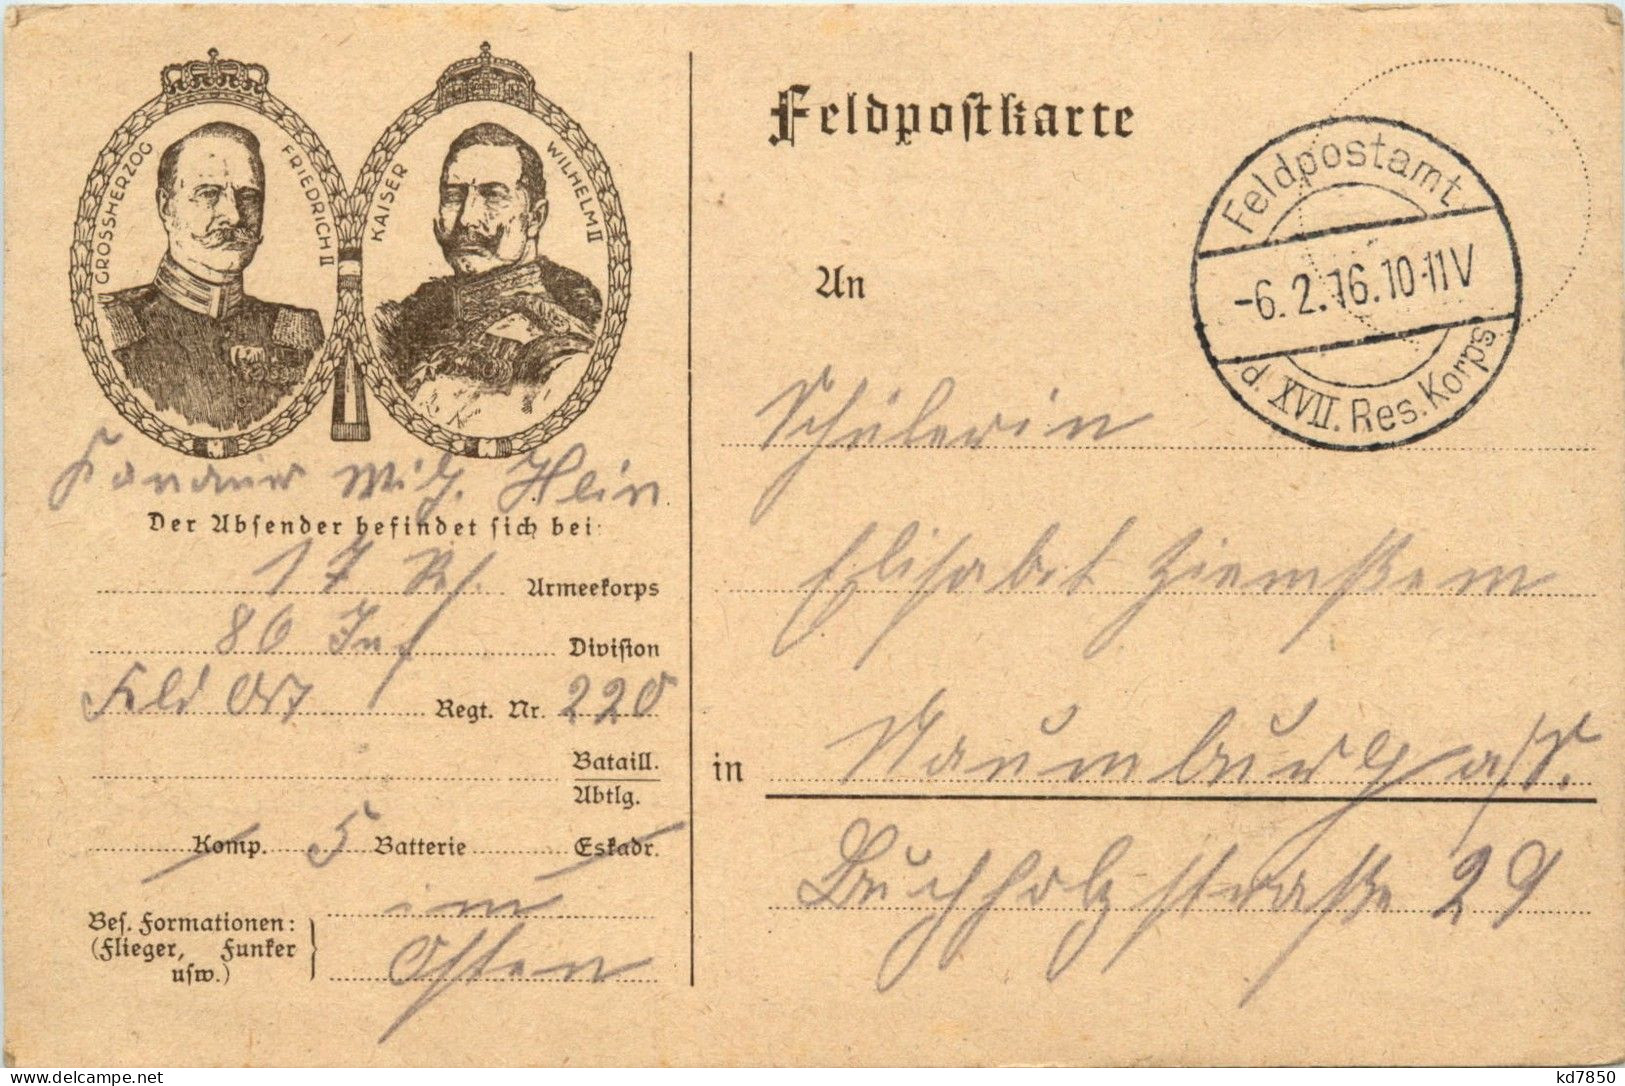 GROSSHERZOG FRIEDRICH II
KAISER WILHELM II
Feldpostkarte
Feldpostamt
-6.2.16.10-11V
d. XVII. Res. Korps
Wilh. Hein
Der Absender befindet sich bei:
17 Armeekorps
86 Inf Division
Feld Art Regt. Nr. 220
Bataill.
Abtlg.
Komp. 5 Batterie Eskadr.
Bes. Formationen: im
(Flieger, Funker
usw.) Osten
An
Schülerin
Elisabet
in Naumburg a/S.
Buchholzstraße 29
kd7850